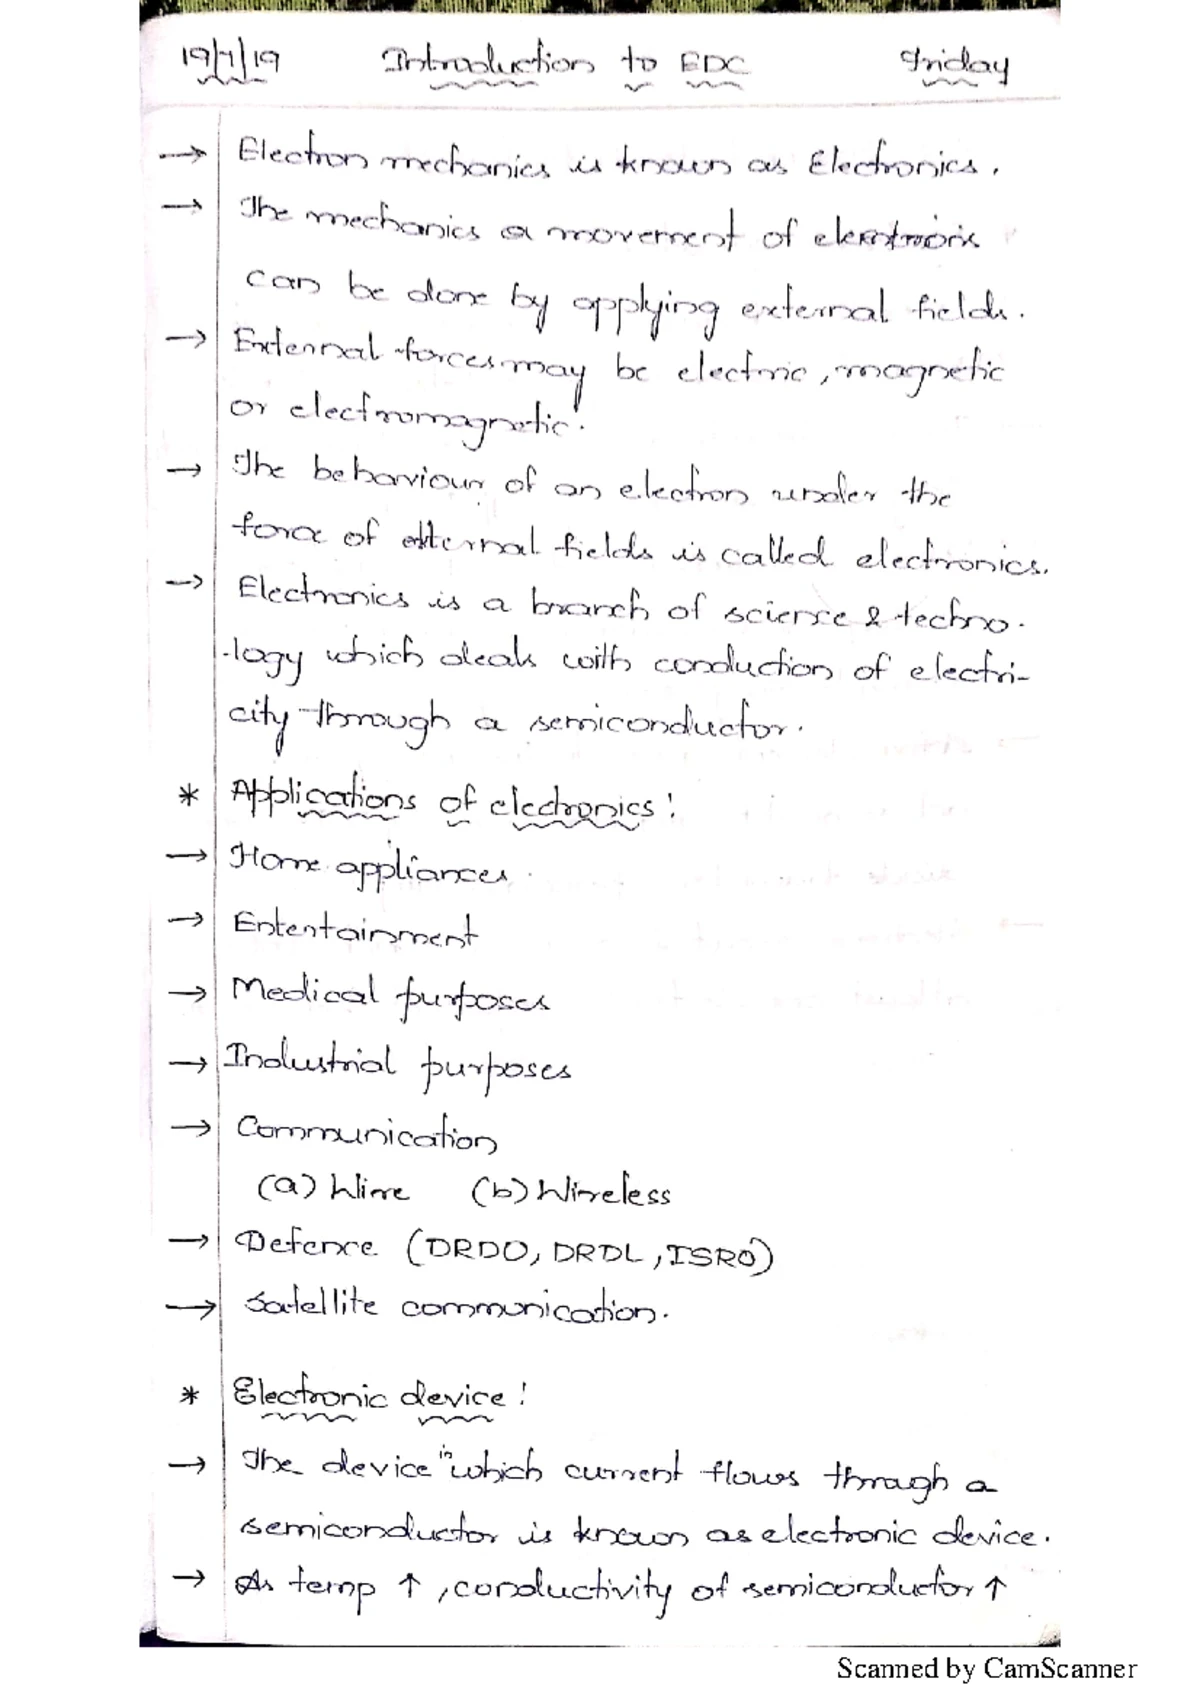 19/7/19 Introduction to EDC Friday
→ Electron mechanics is known as Electronics.
→ The mechanics or movement of electrons
can be done by applying external fields.
→ External forces may be electric, magnetic
or electromagnetic.
→ The behaviour of an electron under the
force of external fields is called electronics.
→ Electronics is a branch of science & techno-
-logy which deals with conduction of electri-
city through a semiconductor.
* Applications of electronics:
→ Home appliances
→ Entertainment
→ Medical purposes
→ Industrial purposes
→ Communication
(a) Wire (b) Wireless
→ Defence (DRDO, DRDL, ISRO)
→ Satellite communication.
* Electronic device:
→ The device in which current flows through a
semiconductor is known as electronic device.
→ As temp ↑, conductivity of semiconductor ↑
Scanned by CamScanner